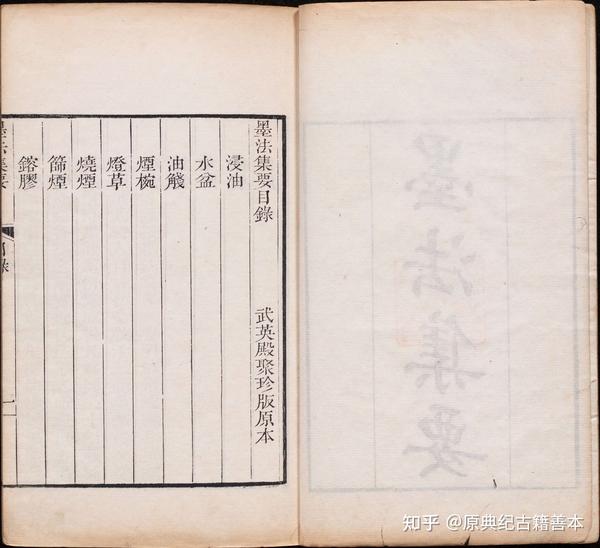 墨法集要
墨法集要目錄 武英殿聚珍版原本
浸油
水盆
油醆
煙椀
燈草
燒煙
篩煙
鎔膠
墨法集要 目錄 一
知乎 @原典纪古籍善本